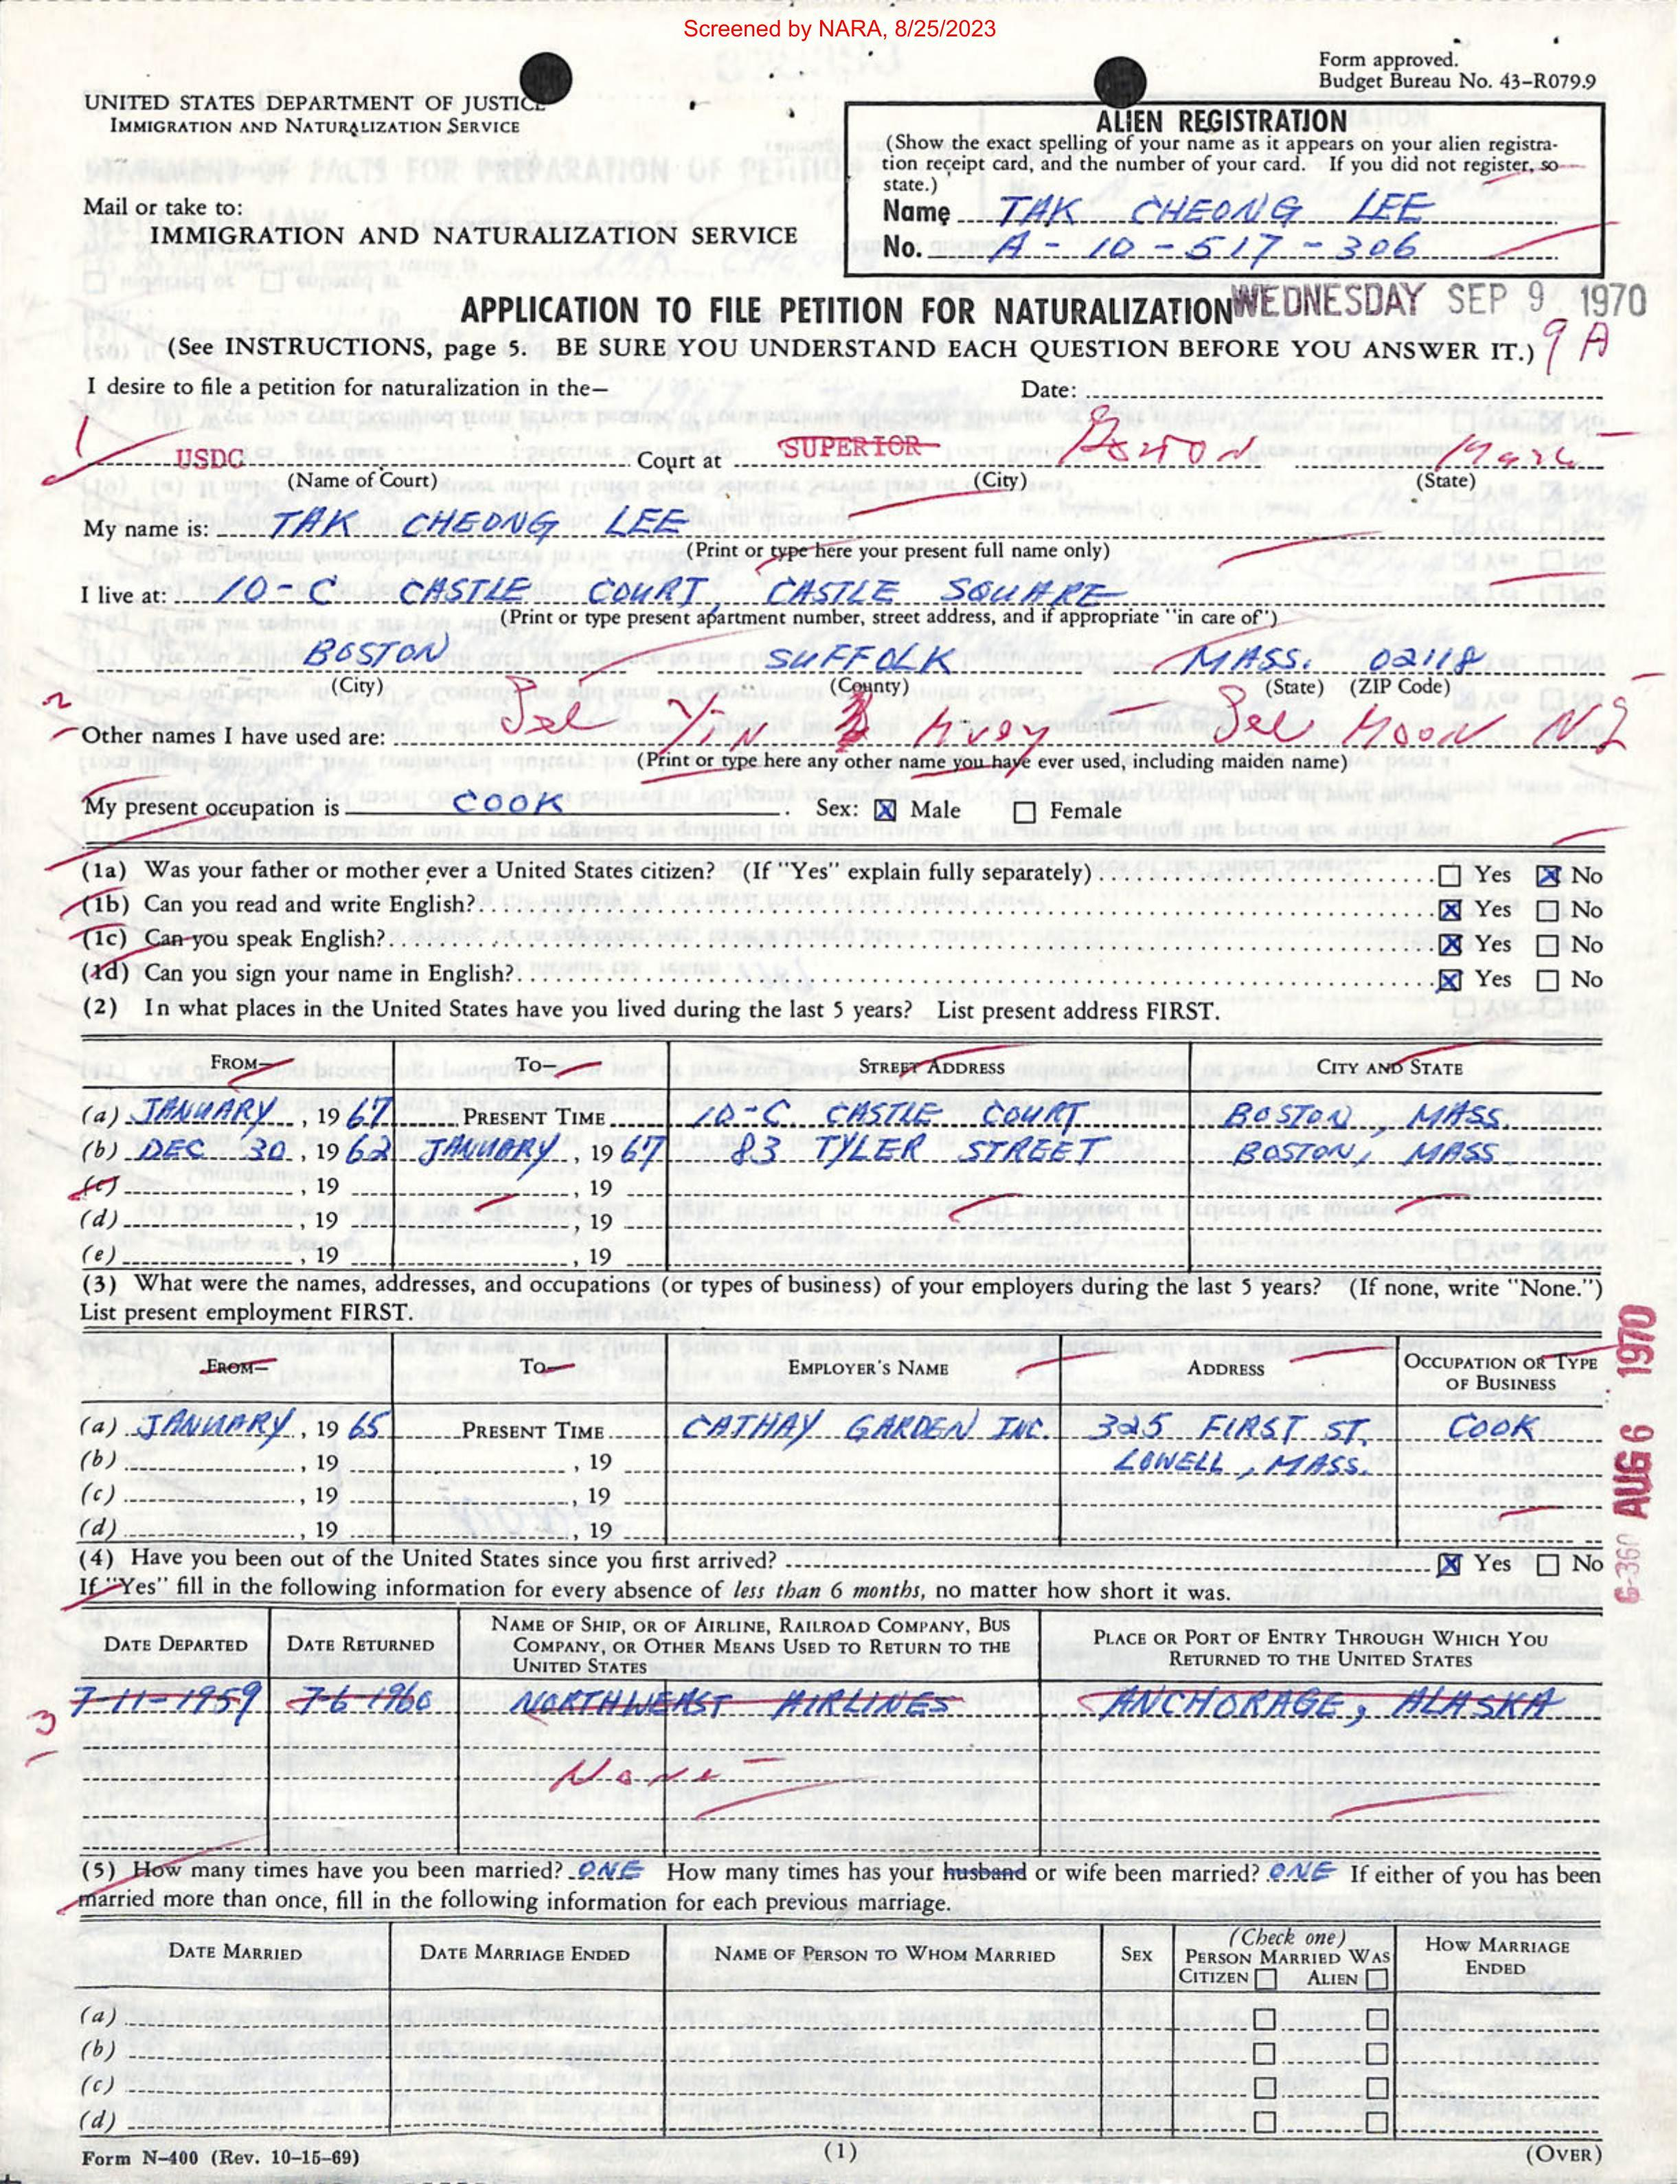 Screened by NARA, 8/25/2023
Form approved.
Budget Bureau No. 43-R079.9
UNITED STATES DEPARTMENT OF JUSTICE
IMMIGRATION AND NATURALIZATION SERVICE
ALIEN REGISTRATION
(Show the exact spelling of your name as it appears on your alien registra-
tion receipt card, and the number of your card. If you did not register, so
state.)
Name TAK CHEONG LEE
No. A-10-517-306
Mail or take to:
IMMIGRATION AND NATURALIZATION SERVICE
APPLICATION TO FILE PETITION FOR NATURALIZATION WEDNESDAY SEP 9 1970
(See INSTRUCTIONS, page 5. BE SURE YOU UNDERSTAND EACH QUESTION BEFORE YOU ANSWER IT.) 9 A
I desire to file a petition for naturalization in the— Date:
1 USDC Court at SUPERIOR Boston Mass
(Name of Court) (City) (State)
My name is: TAK CHEONG LEE
(Print or type here your present full name only)
I live at: 10-C CASTLE COURT, CASTLE SQUARE
(Print or type present apartment number, street address, and if appropriate "in care of")
BOSTON SUFFOLK MASS. 02118
(City) (County) (State) (ZIP Code)
2
Other names I have used are: Yin Moon
(Print or type here any other name you have ever used, including maiden name)
My present occupation is COOK. Sex: ☒ Male ☐ Female
(1a) Was your father or mother ever a United States citizen? (If "Yes" explain fully separately) ☐ Yes ☒ No
(1b) Can you read and write English? ☒ Yes ☐ No
(1c) Can you speak English? ☒ Yes ☐ No
(1d) Can you sign your name in English? ☒ Yes ☐ No
(2) In what places in the United States have you lived during the last 5 years? List present address FIRST.
FROM— TO— STREET ADDRESS CITY AND STATE
(a) JANUARY, 19 67 PRESENT TIME 10-C CASTLE COURT BOSTON, MASS.
(b) DEC 30, 19 62 JANUARY, 19 67 83 TYLER STREET BOSTON, MASS
(c) , 19 , 19
(d) , 19 , 19
(e) , 19 , 19
(3) What were the names, addresses, and occupations (or types of business) of your employers during the last 5 years? (If none, write "None.")
List present employment FIRST.
FROM— TO— EMPLOYER'S NAME ADDRESS OCCUPATION OR TYPE
OF BUSINESS
(a) JANUARY, 19 65 PRESENT TIME CATHAY GARDEN INC. 325 FIRST ST. COOK
(b) , 19 , 19 LOWELL, MASS.
(c) , 19 , 19
(d) , 19 , 19
6-360 AUG 6 1970
(4) Have you been out of the United States since you first arrived? ☒ Yes ☐ No
If "Yes" fill in the following information for every absence of less than 6 months, no matter how short it was.
DATE DEPARTED DATE RETURNED NAME OF SHIP, OR OF AIRLINE, RAILROAD COMPANY, BUS
COMPANY, OR OTHER MEANS USED TO RETURN TO THE
UNITED STATES PLACE OR PORT OF ENTRY THROUGH WHICH YOU
RETURNED TO THE UNITED STATES
7-11-1959 7-6 1960 NORTHWEAST AIRLINES ANCHORAGE, ALASKA
3
None
(5) How many times have you been married? ONE How many times has your husband or wife been married? ONE If either of you has been
married more than once, fill in the following information for each previous marriage.
DATE MARRIED DATE MARRIAGE ENDED NAME OF PERSON TO WHOM MARRIED SEX (Check one)
PERSON MARRIED WAS
CITIZEN ☐ ALIEN ☐ HOW MARRIAGE
ENDED
(a) ☐ ☐
(b) ☐ ☐
(c) ☐ ☐
(d) ☐ ☐
Form N-400 (Rev. 10-15-69) (1) (OVER)